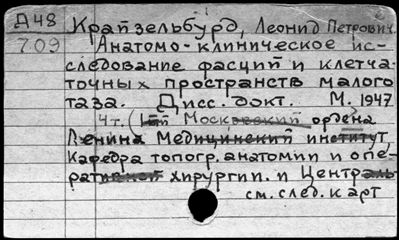 Д48 Крапзельбурд, Леонид Петрович.
709 Анатомо-клиническое ис-
следование фасций и клетча-
точных пространств малого
таза. Дисс. докт. М. 1947
4т. (1ый Московский ордена
Ленина Медицинский институт,
Кафедра топогр. анатомии и опе-
ративной хирургии. и Централь-
см. след. карт